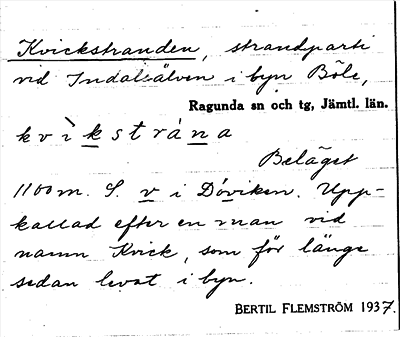 Kvickstranden, strandparti
vid Indalsälven i byn Böle,
Ragunda sn och tg, Jämtl. län.
kvìkstrána
Beläget
1100 m. S. v i Döviken. Upp-
kallad efter en man vid
namn Kvick, som för länge
sedan levat i byn.
BERTIL FLEMSTRÖM 1937.